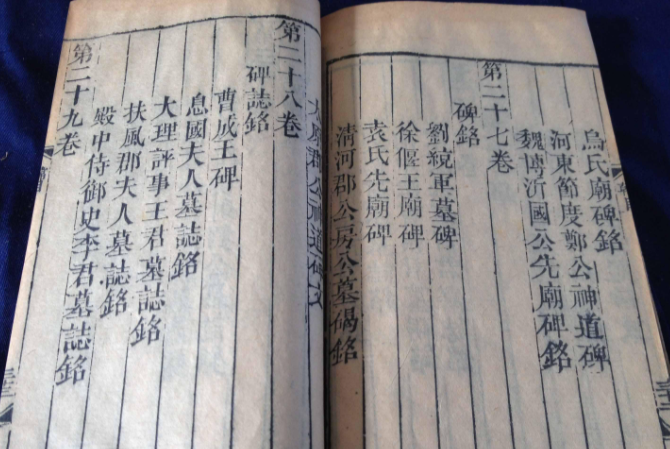 烏氏廟碑銘
河東節度鄭公神道碑
魏博沂國公先廟碑銘
第二十七卷
碑銘
劉統軍墓碑
徐偃王廟碑
袁氏先廟碑
清河郡公房公墓碣銘
郡公神道碑文
第二十八卷
碑誌銘
曹成王碑
息國夫人墓誌銘
大理評事王君墓誌銘
扶風郡夫人墓誌銘
殿中侍御史李君墓誌銘
第二十九卷